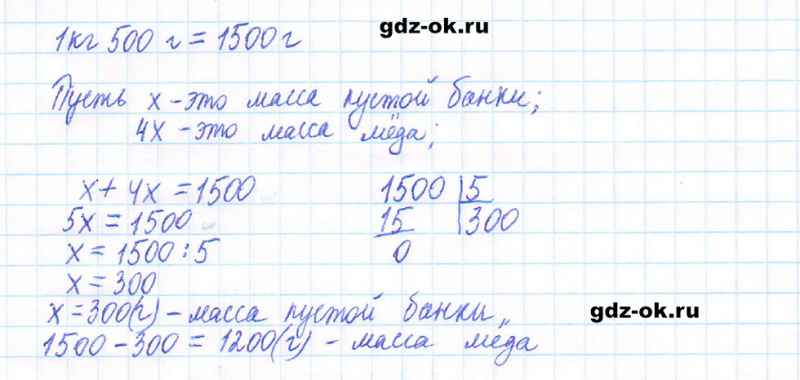 gdz-ok.ru
1кг 500 г = 1500 г
Пусть x - это масса пустой банки;
4x - это масса мёда;
x + 4x = 1500
5x = 1500
x = 1500 : 5
x = 300
1500 | 5
15 | 300
0
x = 300(г) - масса пустой банки
gdz-ok.ru
1500 - 300 = 1200(г) - масса мёда